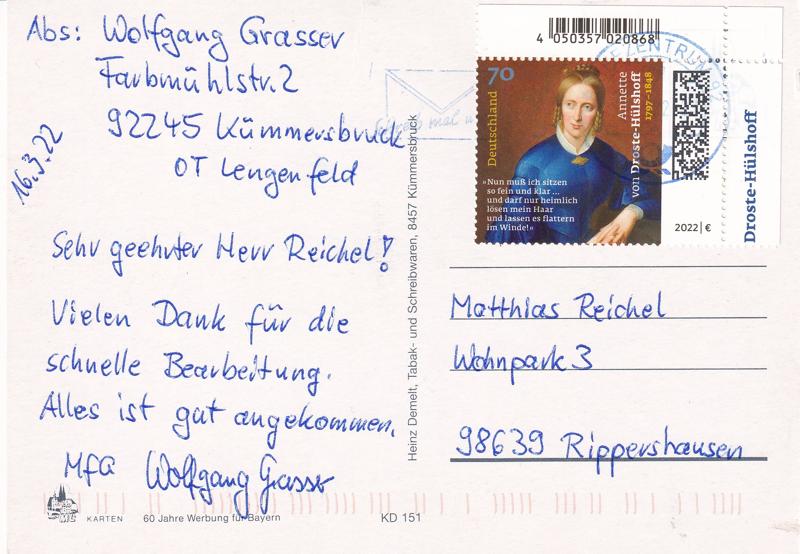 Abs: Wolfgang Grasser
Farbmühlstr. 2
92245 Kümmersbruck
OT Lengenfeld
16.3.22
Sehr geehrter Herr Reichel!
Vielen Dank für die
schnelle Bearbeitung.
Alles ist gut angekommen.
MfG Wolfgang Grasser
MC KARTEN
60 Jahre Werbung für Bayern
KD 151
Heinz Demelt, Tabak- und Schreibwaren, 8457 Kümmersbruck
4 050357 020868
70
Deutschland
Annette
von Droste-Hülshoff
1797–1848
»Nun muß ich sitzen
so fein und klar ...
und darf nur heimlich
lösen mein Haar
und lassen es flattern
im Winde!«
2022 | €
Droste-Hülshoff
Matthias Reichel
Wohnpark 3
98639 Rippershausen